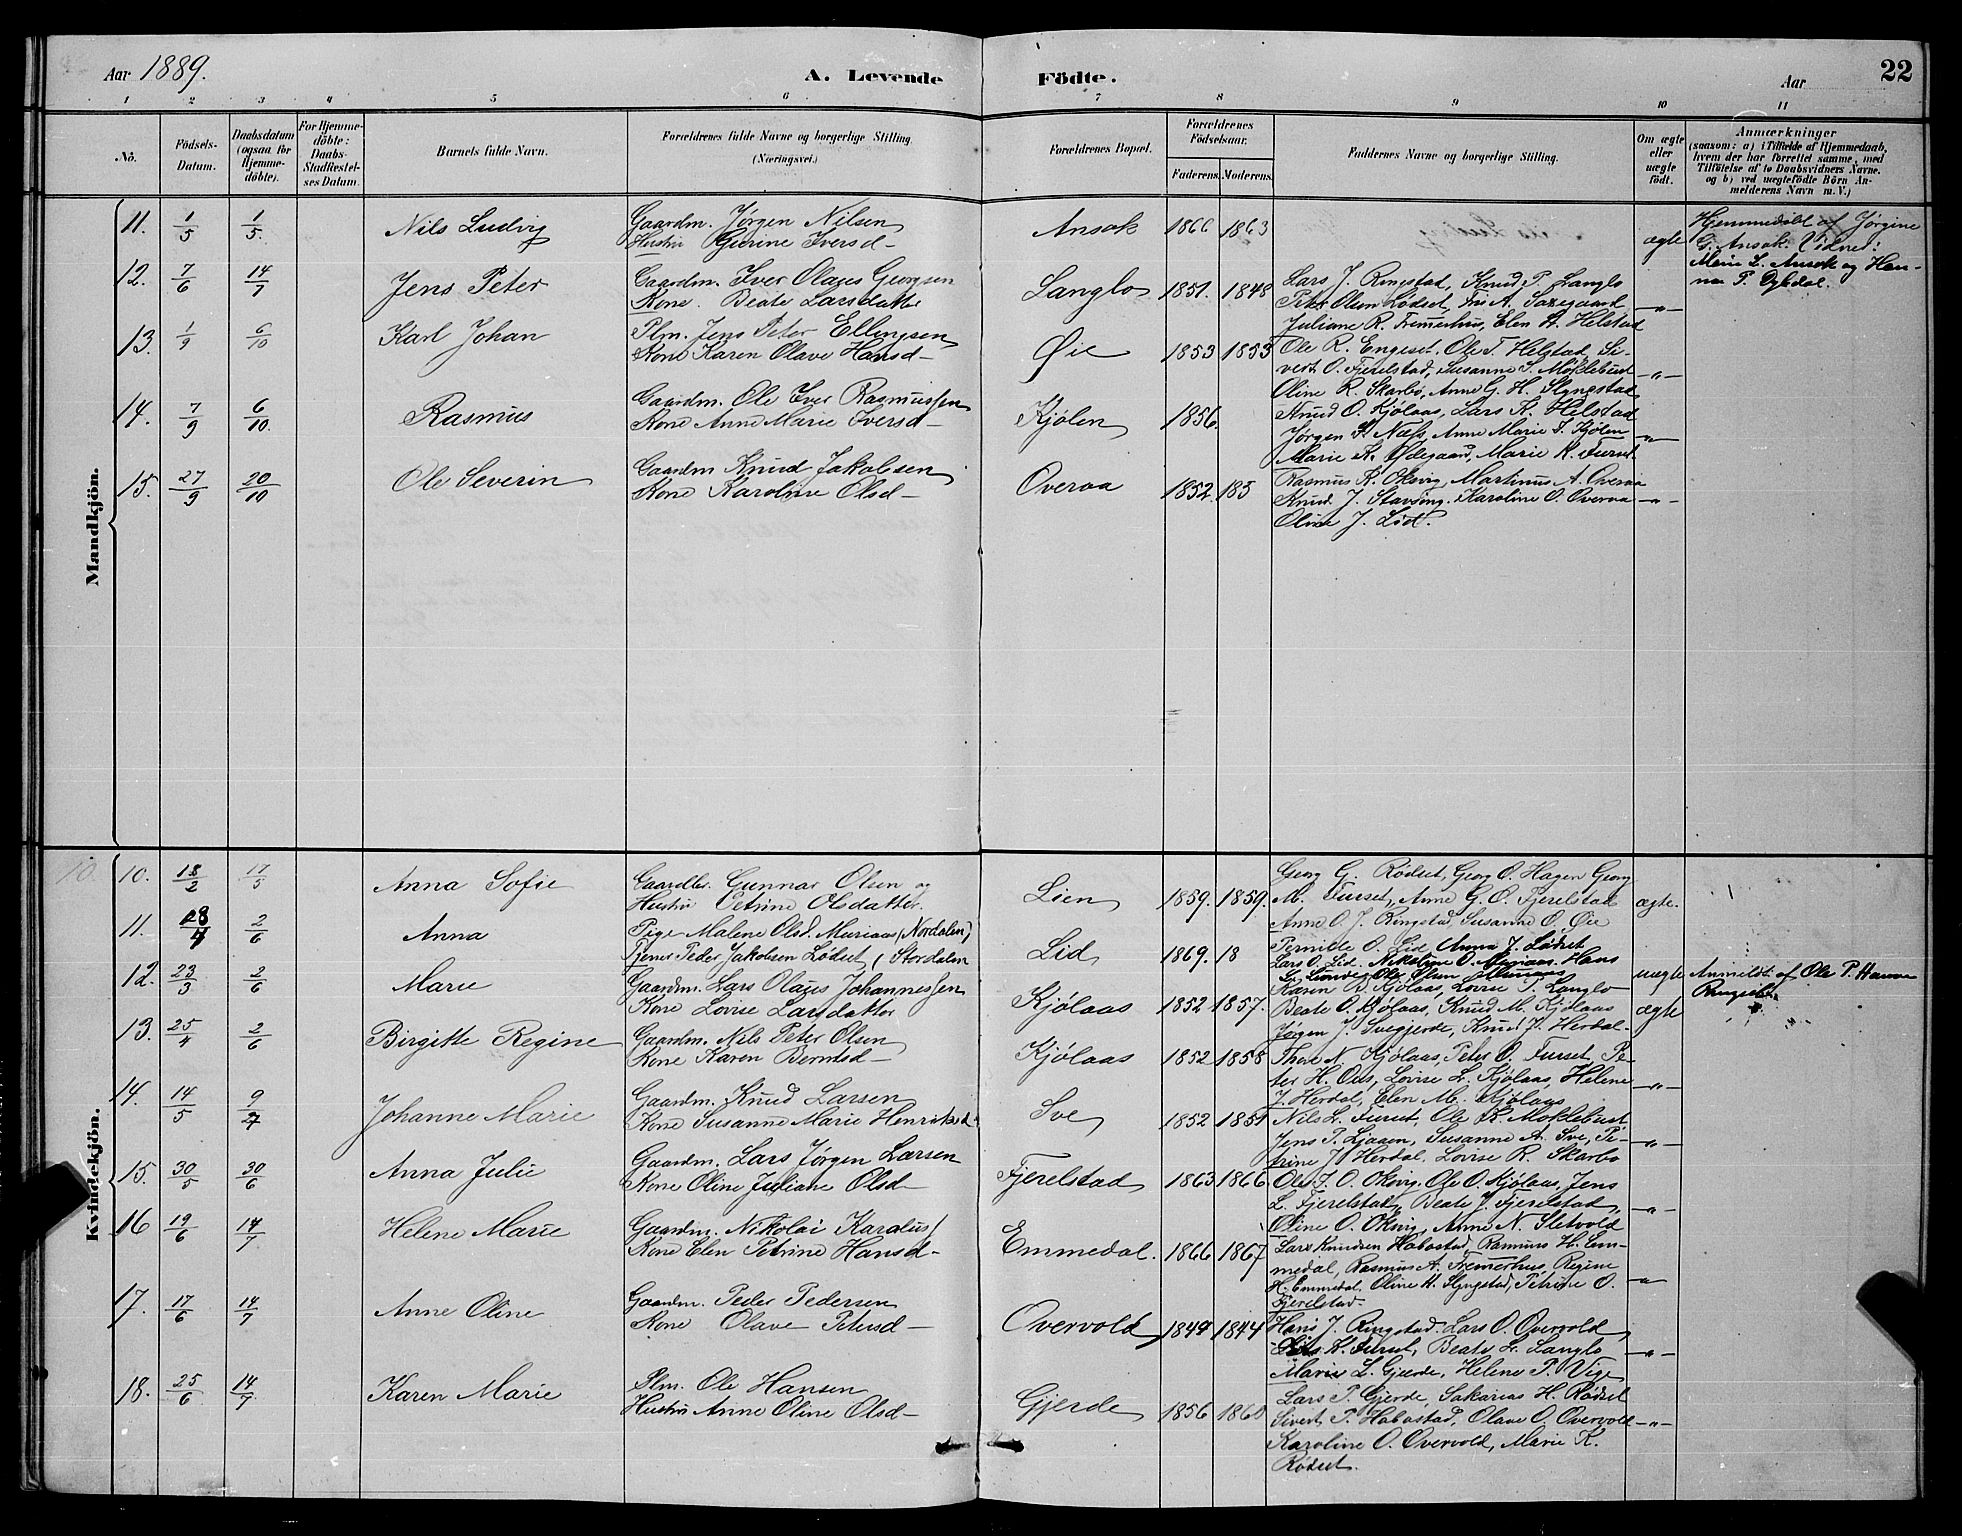 Aar 1889.
A. Levende Födte.
Aar
22
1 2 3 4 5 6 7 8 9 10 11
No.
Födsels-
Datum.
Daabsdatum
(ogsaa for
Hjemme-
döbte).
For Hjemme-
döbte:
Daabs-
Stadfæstel-
ses Datum.
Barnets fulde Navn.
Forældrenes fulde Navne og borgerlige Stilling.
(Næringsvei.)
Forældrenes Bopæl.
Forældrenes
Födselsaar.
Faderens. Moderens.
Faddernes Navne og borgerlige Stilling.
Om ægte
eller
uægte
födt.
Anmærkninger
(saasom: a) i Tilfælde af Hjemmedaab,
hvem der har forrettet samme, med
Tilföielse af to Daabsvidners Navne.
og b) ved uægtefödte Börn An-
melderens Navn m. V.)
Mandkjön.
11. 1/5 1/5. Nils Ludvig
Gaardm. Jørgen Nilsen
Hustru Gurine Iversd-
Ansok 1866 1863
ægte
Hjemmedøbt af Jørgine
G. Ansok. Vidner:
Marie L. Ansok og Han-
na P. Dybdal.
12. 7/6 14/7 Jens Peter
Gaardm. Iver Olaus Georgsen
Kone. Beate Larsdatter
Langlo 1851. 1848
Lars J. Ringstad, Knud P. Langlo
Peter Olsen Lødset, Iver A. Saxegaard
Juliane R. Fremerhus, Elen H. Helstad
-"-
13. 1/9 6/10 Karl Johan
Plm. Jens Peter Ellingsen
Kone Karen Olave Hansd-
Øie 1853 1853
Ole R. Engeset. Ole T. Helstad, Si-
vert O. Fjerelstad, Susanne S. Moldebust
Oline R. Skarbø, Anne G. H. Slyngstad
-"-
14. 7/9 6/10. Rasmus
Gaardm. Ole Iver Rasmussen
Kone Anne Marie Iversd-
Kjølen 1856.
Knud O. Kjølaas, Lars K. Helstad
Jørgen S. Næss, Anne Marie I. Kjølen
Marie K. Ødegaard, Marie K. Furset.
-"-
15. 27/9 20/10 Ole Severin
Gaardm Knud Jakobsen
Kone Karoline Olsd-
Overaa 1852. 185
Rasmus K. Oksvig, Martinus A. Overaa
Knud J. Stavseng. Karoline O. Overaa
Oline J. Lid.
-"-
Kvindekjön.
10. 10. 18/2 17/5 Anna Sofie
Gaardbr. Gunnar Olsen og
Hustru Petrine Olsdatter
Lien 1859. 1859.
Georg G. Rødset, Georg O. Hagen Georg
M. Furset, Anne G. O. Fjerelstad
Anne O. J. Ringstad, Susanne O. Øie
ægte.
11. 28/4 2/6 Anna
Pige Malene Olsd. Muriaas (Nordalen)
Tjener Peder Jakobsen Lødset, (Stordalen
Lid 1869. 18
Pernille O. Lid, Anna J. Lødset
Lars O. Lid. Nikoline O. Muriaas. Hans
uægte
Anmeldt af Ole P. Hauva
12. 23/3 2/6 Marie
Gaardm. Lars Olaus Johannessen
Kone Lovise Larsdatter
Kjølaas 1852 1857.
Karen B. Kjølaas, Lovise P. Langlo
Beate O. Kjølaas, Knud M. Kjølaas
Jørgen J. Svegjerde, Knud J. Herdal-
ægte
13. 25/4 2/6 Birgitte Regine
Gaardm. Nils Peter Olsen
Kone Karen Berntsd-
Kjølaas 1852 1858
Thore N. Kjølaas, Peter O. Furset, Pe-
ter H. Ous, Lovise L. Kjølaas, Helene
J. Herdal, Elen M. Kjølaas
-"-
14. 14/5 9/7 Johanne Marie
Gaardm. Knud Larsen
Kone Susanne Marie Henriksd.
Sve 1852 1851
Nils L. Furset, Ole K. Moldebust
Jens P. Ljaaen, Susanne A. Sve, Pe-
trine J. Herdal, Lovise R. Skarbø
-"-
15. 30/5 30/6 Anna Julie
Gaardm. Lars Jørgen Larsen
Kone Oline Juliane Olsd-
Fjerelstad 1863 1866
Ole J. O. Oksvig, Ole O. Kjølaas, Jens
L. Fjerelstad, Beate J. Fjerelstad,
Oline O. Oksvig, Anne N. Sletvold
-"-
16 19/6 14/7 Helene Marie
Gaardm. Nikolai Karolus
Kone Elen Petrine Hansd-
Emmedal. 1866 1867
Lars Knudsen Habostad, Rasmus H. Em-
medal, Rasmus A. Fremerhus, Regine
H. Emmedal, Oline H. Slyngstad, Petrine O.
Fjerelstad.
-"-
17. 17/6 14/7 Anne Oline
Gaardm. Peder Pedersen
Kone Olave Petersd-
Overvold 1847 1844
Hans J. Ringstad. Lars O. Overvold
K. Furset, Beate L. Langlo
Marie L. Gjerde, Helene P. Vige
-"-
18. 25/6 14/7 Karen Marie
Plm. Ole Hansen
Hustru Anne Oline Olsd-
Gjerde 1856 1860
Lars P. Gjerde, Sakarias H. Rødset
Sivert P. Habostad, Olave O. Overvold
Karoline O. Overvold, Marie K.
Rødset.
-"-